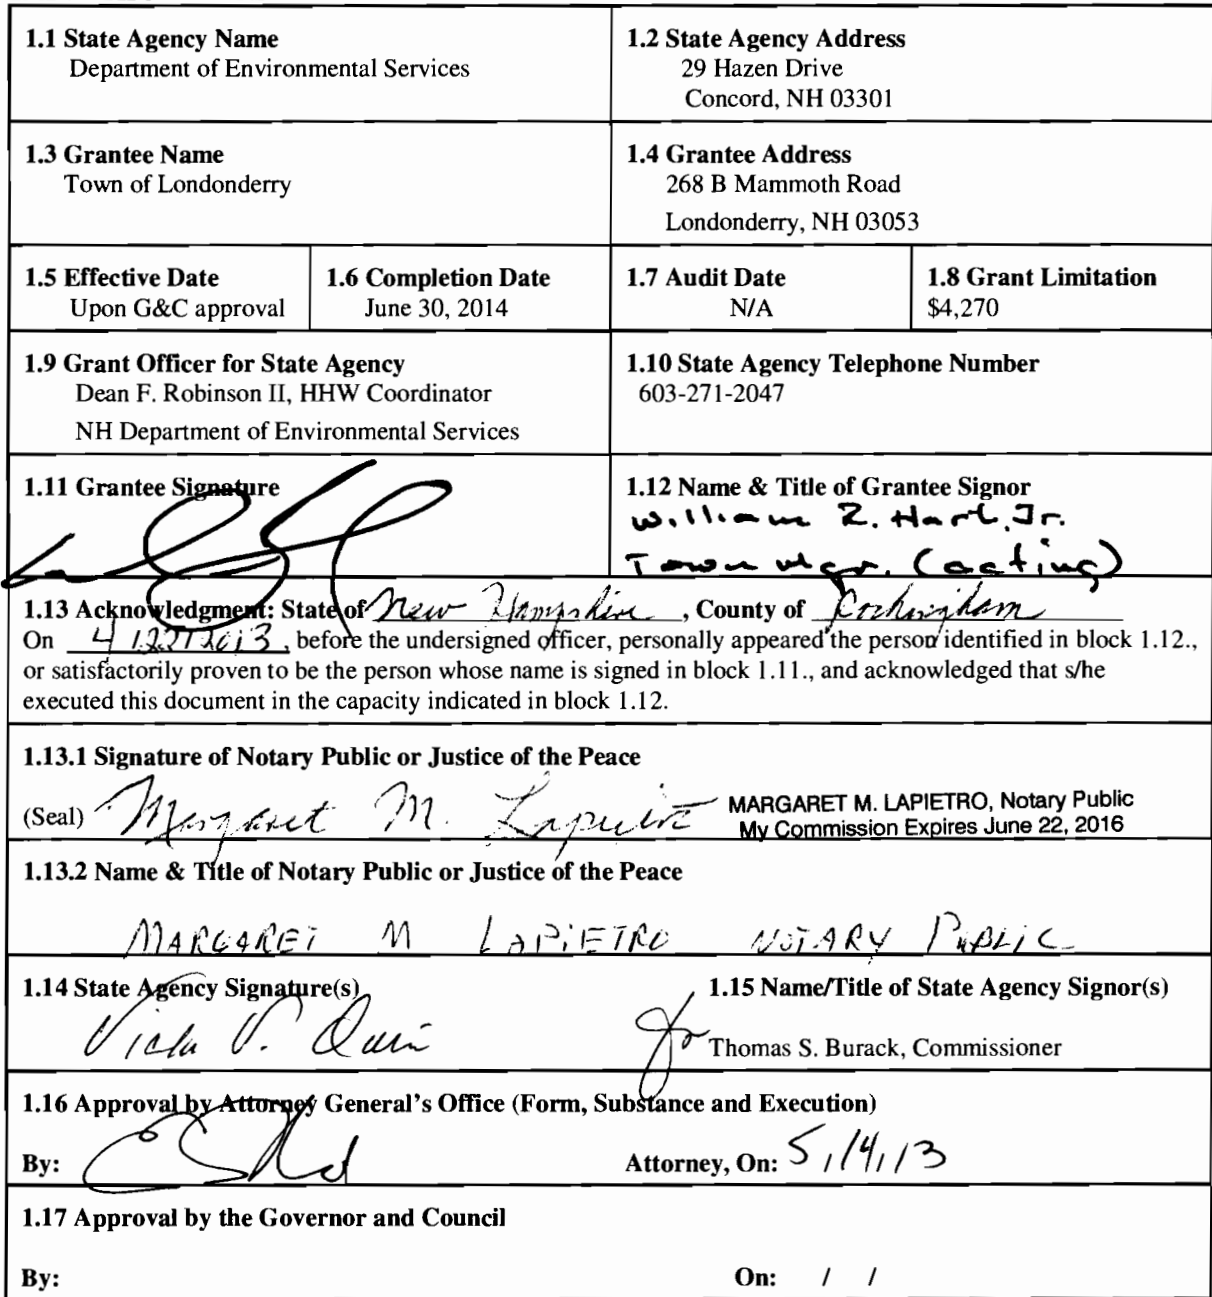 1.1 State Agency Name
Department of Environmental Services
1.2 State Agency Address
29 Hazen Drive
Concord, NH 03301
1.3 Grantee Name
Town of Londonderry
1.4 Grantee Address
268 B Mammoth Road
Londonderry, NH 03053
1.5 Effective Date
Upon G&C approval
1.6 Completion Date
June 30, 2014
1.7 Audit Date
N/A
1.8 Grant Limitation
$4,270
1.9 Grant Officer for State Agency
Dean F. Robinson II, HHW Coordinator
NH Department of Environmental Services
1.10 State Agency Telephone Number
603-271-2047
1.11 Grantee Signature
1.12 Name & Title of Grantee Signor
William R. Hart, Jr.
Town Mgr. (acting)
1.13 Acknowledgment: State of New Hampshire, County of Rockingham
On 4/22/2013, before the undersigned officer, personally appeared the person identified in block 1.12.,
or satisfactorily proven to be the person whose name is signed in block 1.11., and acknowledged that s/he
executed this document in the capacity indicated in block 1.12.
1.13.1 Signature of Notary Public or Justice of the Peace
(Seal) Margaret M. Lapietro
MARGARET M. LAPIETRO, Notary Public
My Commission Expires June 22, 2016
1.13.2 Name & Title of Notary Public or Justice of the Peace
MARGARET M LAPIETRO NOTARY PUBLIC
1.14 State Agency Signature(s)
Vicki V. Quiram
1.15 Name/Title of State Agency Signor(s)
for Thomas S. Burack, Commissioner
1.16 Approval by Attorney General's Office (Form, Substance and Execution)
By:
Attorney, On: 5/14/13
1.17 Approval by the Governor and Council
By:
On: / /